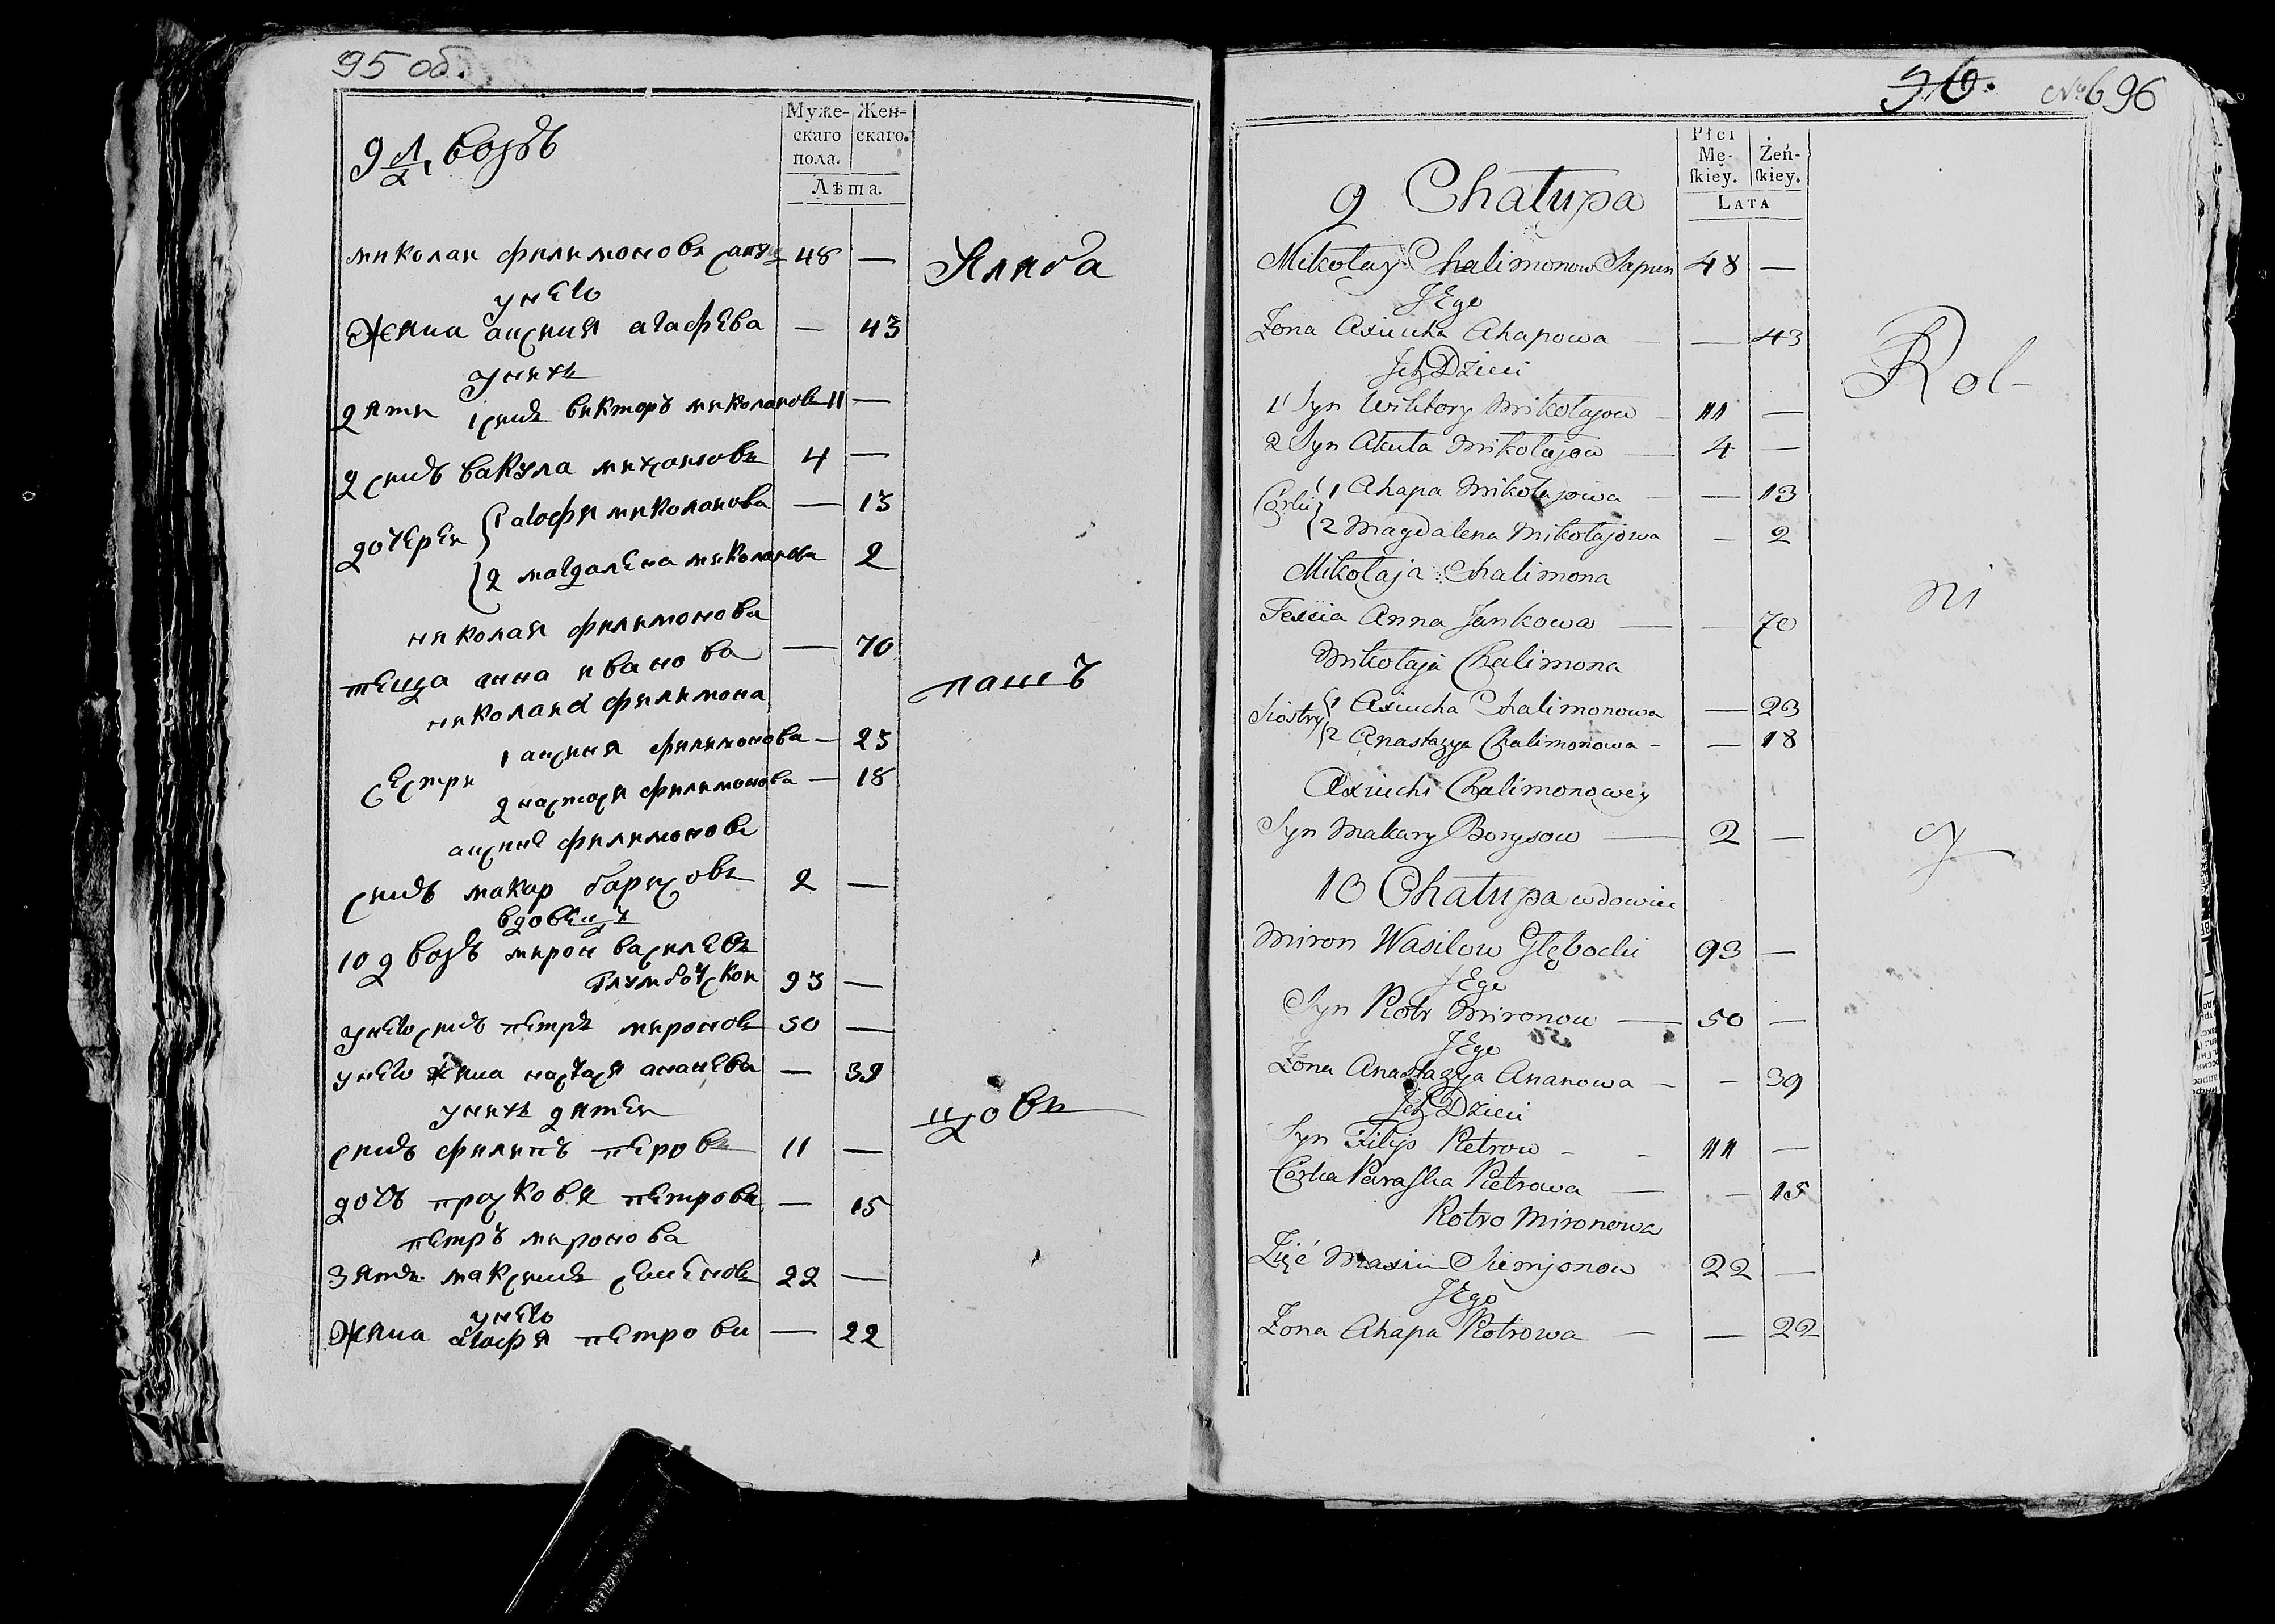 95 об.
Муже- Жен-
скаго скаго.
пола.
Лѣта.
9 Д. воръ
миколаи филимоновъ 48 —
унего
жина аксиня агафева — 43
унихъ
дити 1 синъ викторъ миколаиовъ 11 —
2 синъ вакула 4 —
дочереи 1 агофия миколаиова — 13
2 магдалена миколаиова 2
николая филимонова
теща анна иванова — 70
николаия филимона
сестри 1 аксиня филимонова — 23
2 настася филимонова — 18
аксини филимонови
синъ макар барисовъ 2 —
вдовецъ
10 дворъ мирон василевъ
глумбоцкои 93 —
унего синъ петръ мироновъ 50 —
унего жина настася ананева — 39
унихъ дитеи
синъ филипъ перовъ 11 —
дочъ прасковя петрова — 15
петръ миронова
зять максимъ семеновъ 22 —
унего
жина агафя петрови — 22
пашъ
цовъ
96. № 696
Płci
Mę- Żeń-
skiey. skiey.
LATA
9 Chałupa
Mikołay Chalimonow Sapun 48 —
JEgo
Żona Axiucha Ahapowa — — 43
Jch Dzieci
1 Syn Wiktory Mikołajow — 11 —
2 Syn Akuła Mikołajow — 4 —
Córki 1 Ahapa Mikołajowa — — 13
2 Magdalena Mikołajowa — 2
Mikołaja Chalimona
Teścia Anna Jankowa — — 70
Mikołaja Chalimona
Siostry 1 Axiucha Chalimonowa — 23
2 Anastazya Chalimonowa — — 18
Axiuchi Chalimonowey
Syn Makary Borysow — 2 —
10 Chałupa wdowiec
Miron Wasilow Głębocki 93 —
JEgo
Syn Piotr Mironow — 50 —
JEgo
Żona Anastazya Ananowa — — 39
Jch Dzieci
Syn Filip Pietrow - - 11 —
Córka Paraska Pietrowa — — 15
Piotro Mironowa
Zięć Maxim Siemjonow 22 —
JEgo
Żona Ahapa Piotrowa — — 22
Rol-
ni
cy